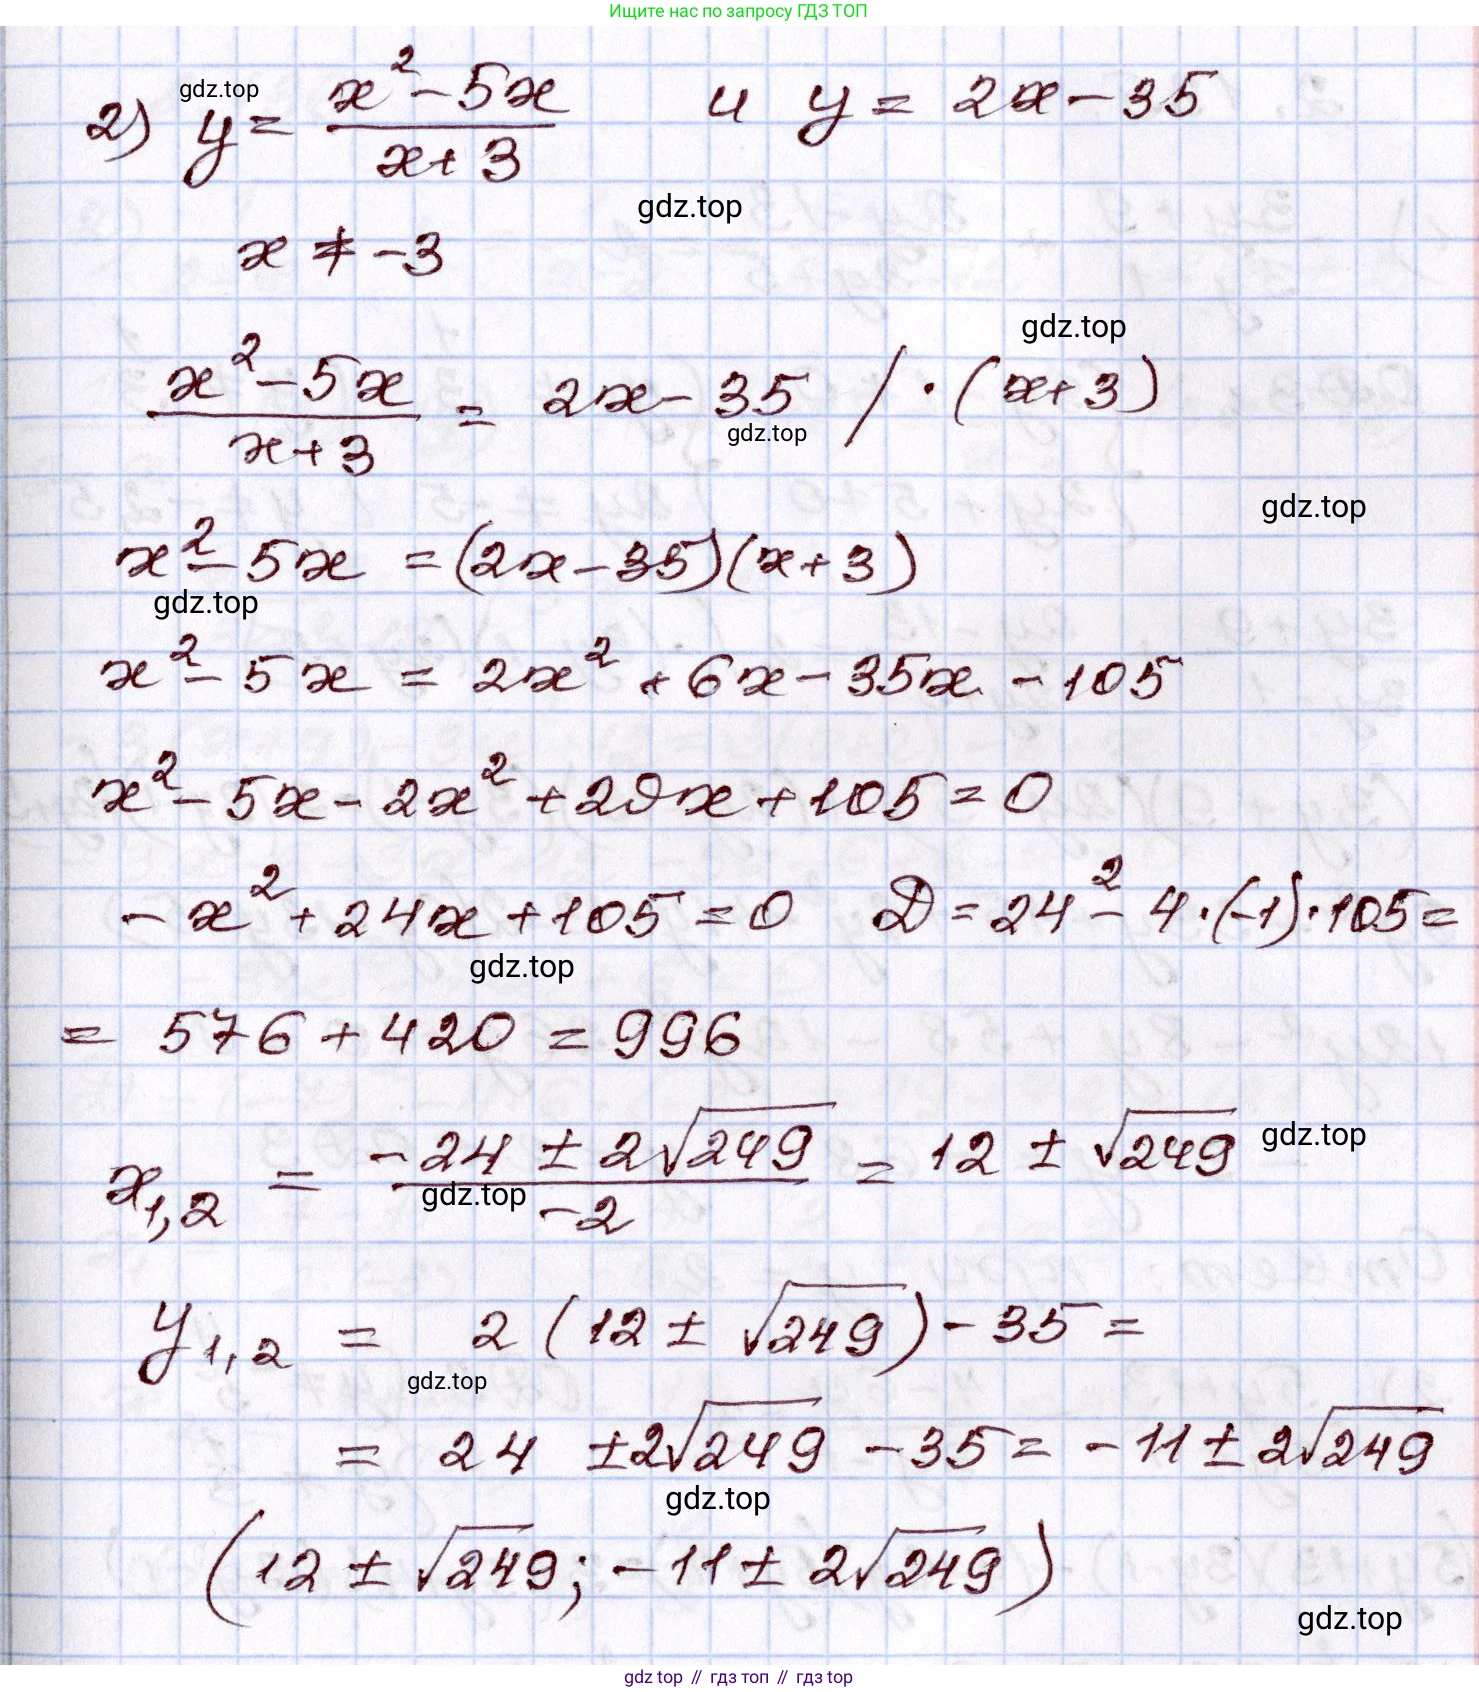 Ищите нас по запросу ГДЗ ТОП
gdz.top
2) y = (x² - 5x)/(x + 3) и y = 2x - 35
gdz.top
x ≠ -3
gdz.top
(x² - 5x)/(x + 3) = 2x - 35 / · (x + 3)
gdz.top
gdz.top
x² - 5x = (2x - 35)(x + 3)
gdz.top
x² - 5x = 2x² + 6x - 35x - 105
x² - 5x - 2x² + 29x + 105 = 0
-x² + 24x + 105 = 0 D = 24² - 4 · (-1) · 105 =
gdz.top
= 576 + 420 = 996
gdz.top
x₁,₂ = (-24 ± 2√249)/(-2) = 12 ± √249
gdz.top
y₁,₂ = 2 (12 ± √249) - 35 =
gdz.top
= 24 ± 2√249 - 35 = -11 ± 2√249
gdz.top
(12 ± √249; -11 ± 2√249)
gdz.top
gdz top // гдз топ // гдз top